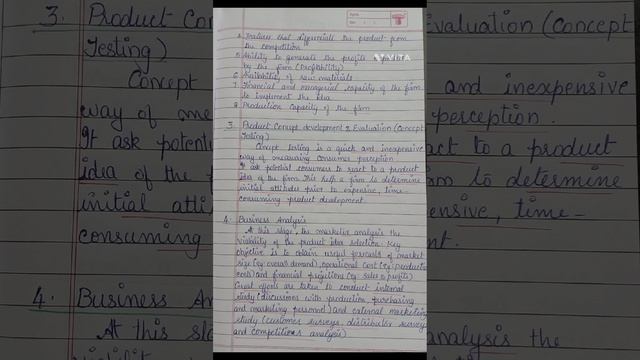 4. Features that differentiate the product from
the competition
5. Ability to generate the profits
by the firm (Profitability)
6. Availability of raw materials
7. Financial and managerial capacity of the firm
to implement the idea
8. Production Capacity of the firm
3. Product Concept development & Evaluation (Concept
Testing)
Concept testing is a quick and inexpensive
way of measuring consumer perception
It ask potential consumers to react to a product
idea of the firm. This help a firm to determine
initial attitudes prior to expensive, time-
consuming product development.
4. Business Analysis
At this stage, the marketer analysis the
viability of the product idea selection. Key
objective is to obtain useful forecasts of market
size (eg: overall demand), operational cost (eg: production
cost) and financial projections (eg: sales & profits)
Great efforts are taken to conduct internal
study (discussions with production, purchasing
and marketing personnel) and external marketing
study (customer surveys, distributor survey
and competitions analysis)